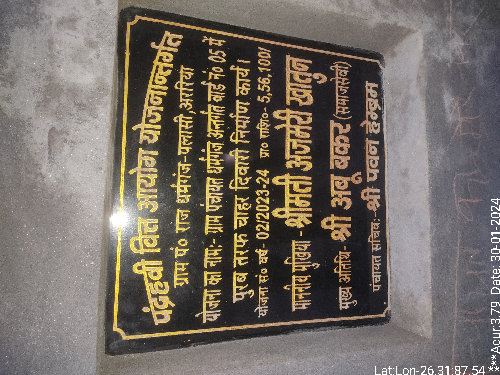 पंद्रहवी वित्त आयोग योजनान्तर्गत
ग्राम पं० राज धर्मगंज-पलासी,अररिया
योजना का नामः- ग्राम पंचायत धर्मगंज अन्तर्गत वार्ड नं० 05 में
पुरब तरफ चाहर दिवारी निर्माण कार्य ।
योजना सं० वर्ष- 02/2023-24 प्रा० राशि०- 5,56,100/
माननीय मुखिया - श्रीमती अजमेरी खातुन
मुख्य अतिथि- श्री अबू बकर (समाजसेवी)
पंचायत सचिवः- श्री पवन हेम्ब्रम
Lat:Lon-26.31:87.54
***Acur:3.79 Date: 30-01-2024